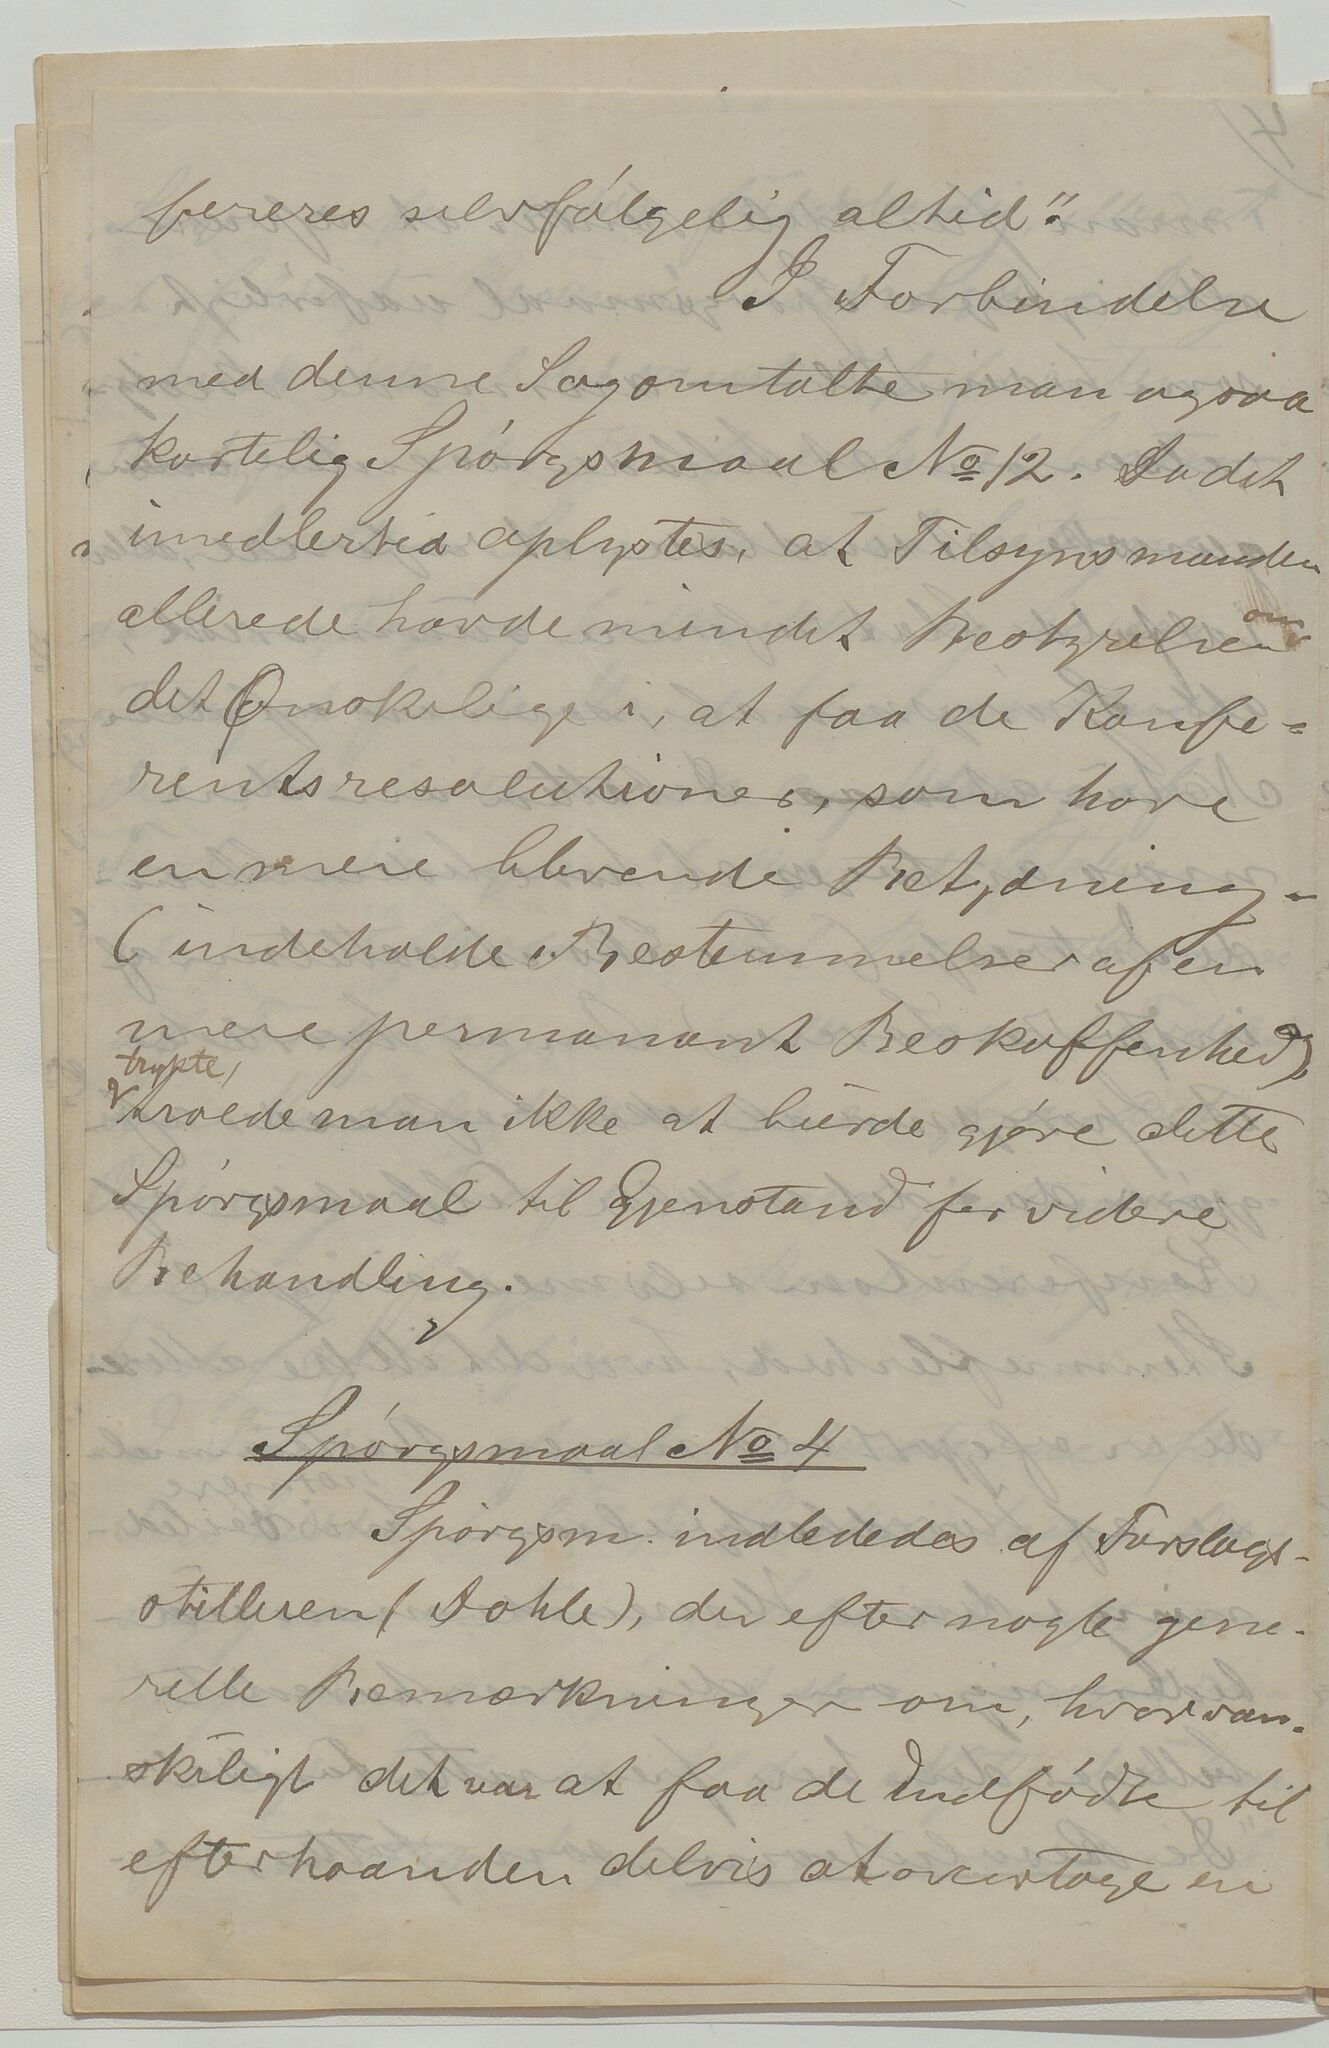 fereres selvfølgelig altid".
I Forbindelse
med denne Sag omtalte man ogsaa
kortelig Spørgsmaal No 12. Da det
imedlertid oplystes, at Tilsynsmanden
allerede havde mindet Bestyrelsen om
det Ønskelige i, at faa de Konfe-
rentsresolutioner, som have
en mere blivende Betydning -
(indeholde Bestemmelser af en
mere permanent Beskaffenhed),
trykte,
troede man ikke at burde gjøre dette
Spørgsmaal til Gjenstand for videre
Behandling.
Spørgsmaal No 4
Spørgsm. indlededes af Forslags-
stilleren (Dahle), der efter nogle gene-
relle Bemærkninger om, hvor van-
skeligt det var at faa de Indfødte til
efterhaanden delvis at overtage en